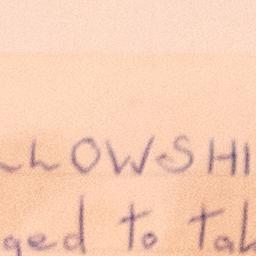 LLOWSHI
ged to tal